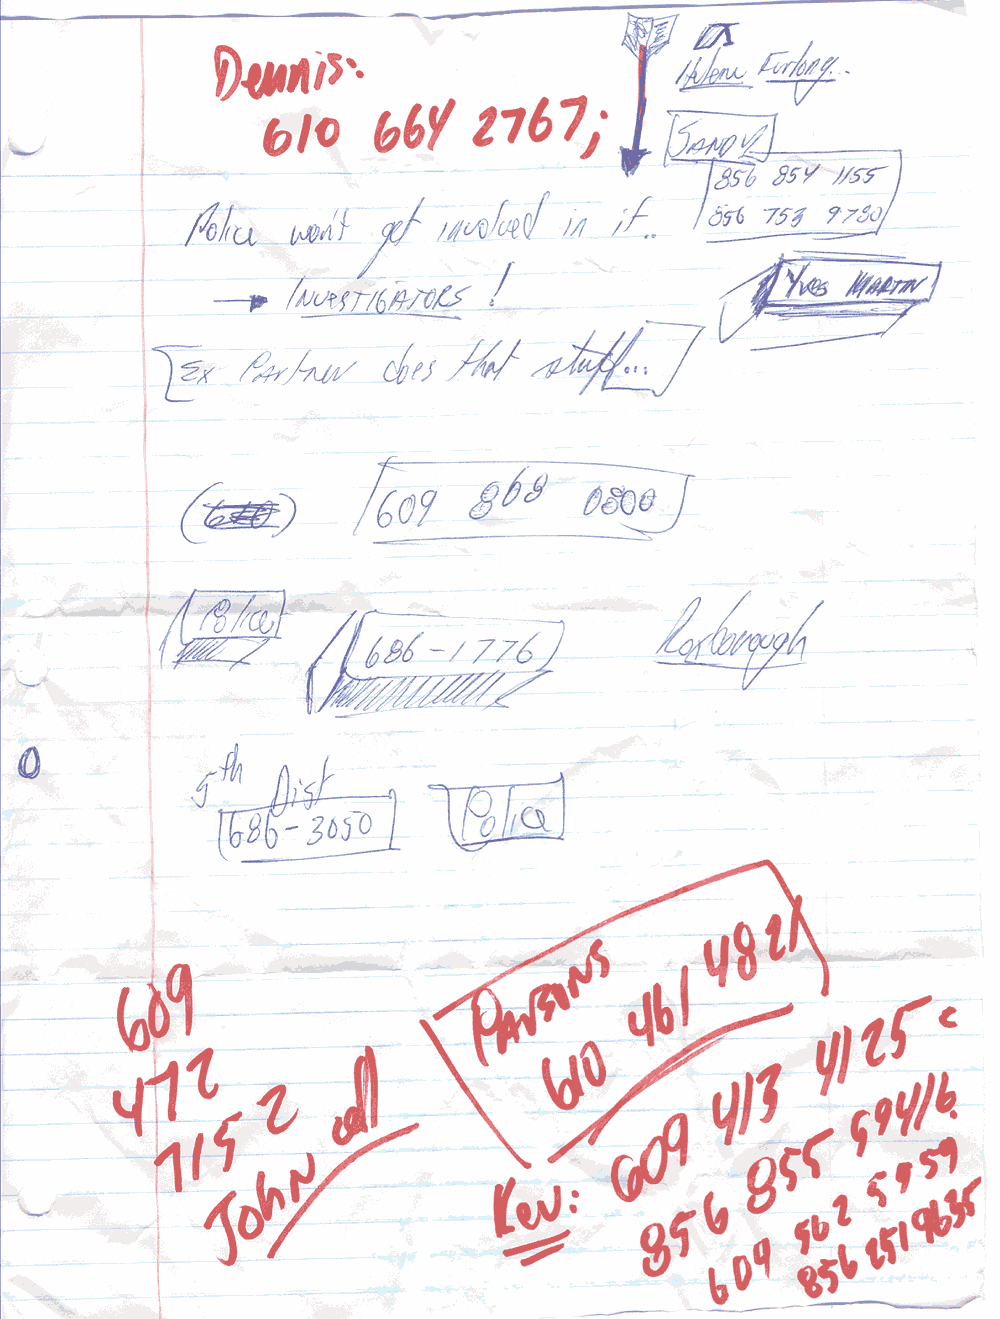 Dennis:
610 664 2767;
Helene Furlong..
SANDY
856 854 1155
856 753 9780
Police won't get involved in it..
INVESTIGATORS!
Yves MARTIN
Ex Partner does that stuff...
609 868 0800
Police
686-1776
Roxborough
5th Dist
686-3050
Police
PARSONS
610 461 4821
609
472
7152
JOHN cell
Kev: 609 413 4125 c
856 855 59416
609 562 5959
856 251 9635
0